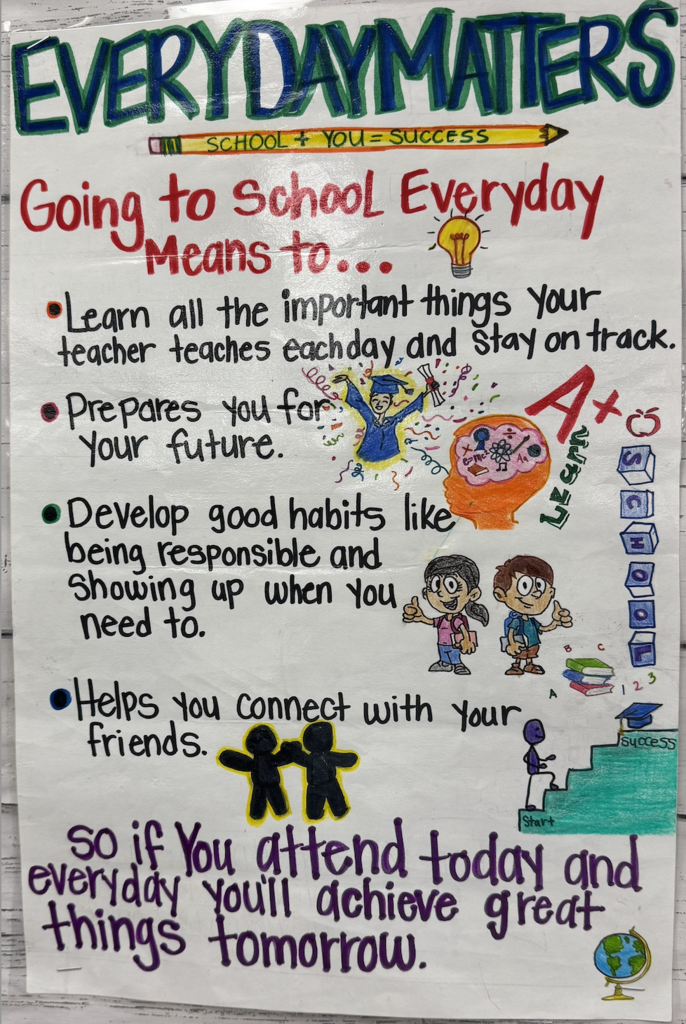 EVERYDAYMATTERS
SCHOOL + YOU = SUCCESS
Going to School Everyday
Means to...
•Learn all the important things your
teacher teaches each day and stay on track.
•Prepares you for
your future.
A+
Learn
SCHOOL
•Develop good habits like
being responsible and
showing up when you
need to.
A B C
1 2 3
•Helps you connect with your
friends.
success
Start
So if You attend today and
everyday you'll achieve great
things tomorrow.